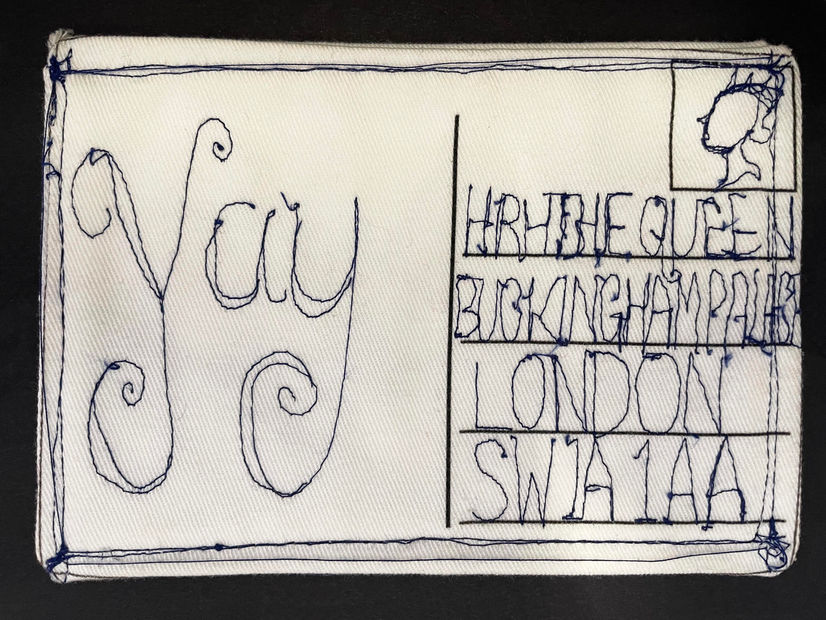 Yay
HRH THE QUEEN
BUCKINGHAM PALACE
LONDON
SW1A 1AA